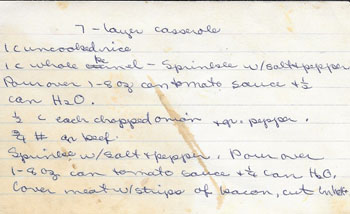 7-layer casserole
1 c uncooked rice
1 c whole kernel - Sprinkle w/salt & pepper
Pour over 1-8 oz can tomato sauce & ½
can H₂O.
½ c each chopped onion & gr. pepper.
¾ # gr beef.
Sprinkle w/salt & pepper. Pour over
1-8 oz can tomato sauce & ½ can H₂O.
Cover meat w/strips of bacon, cut